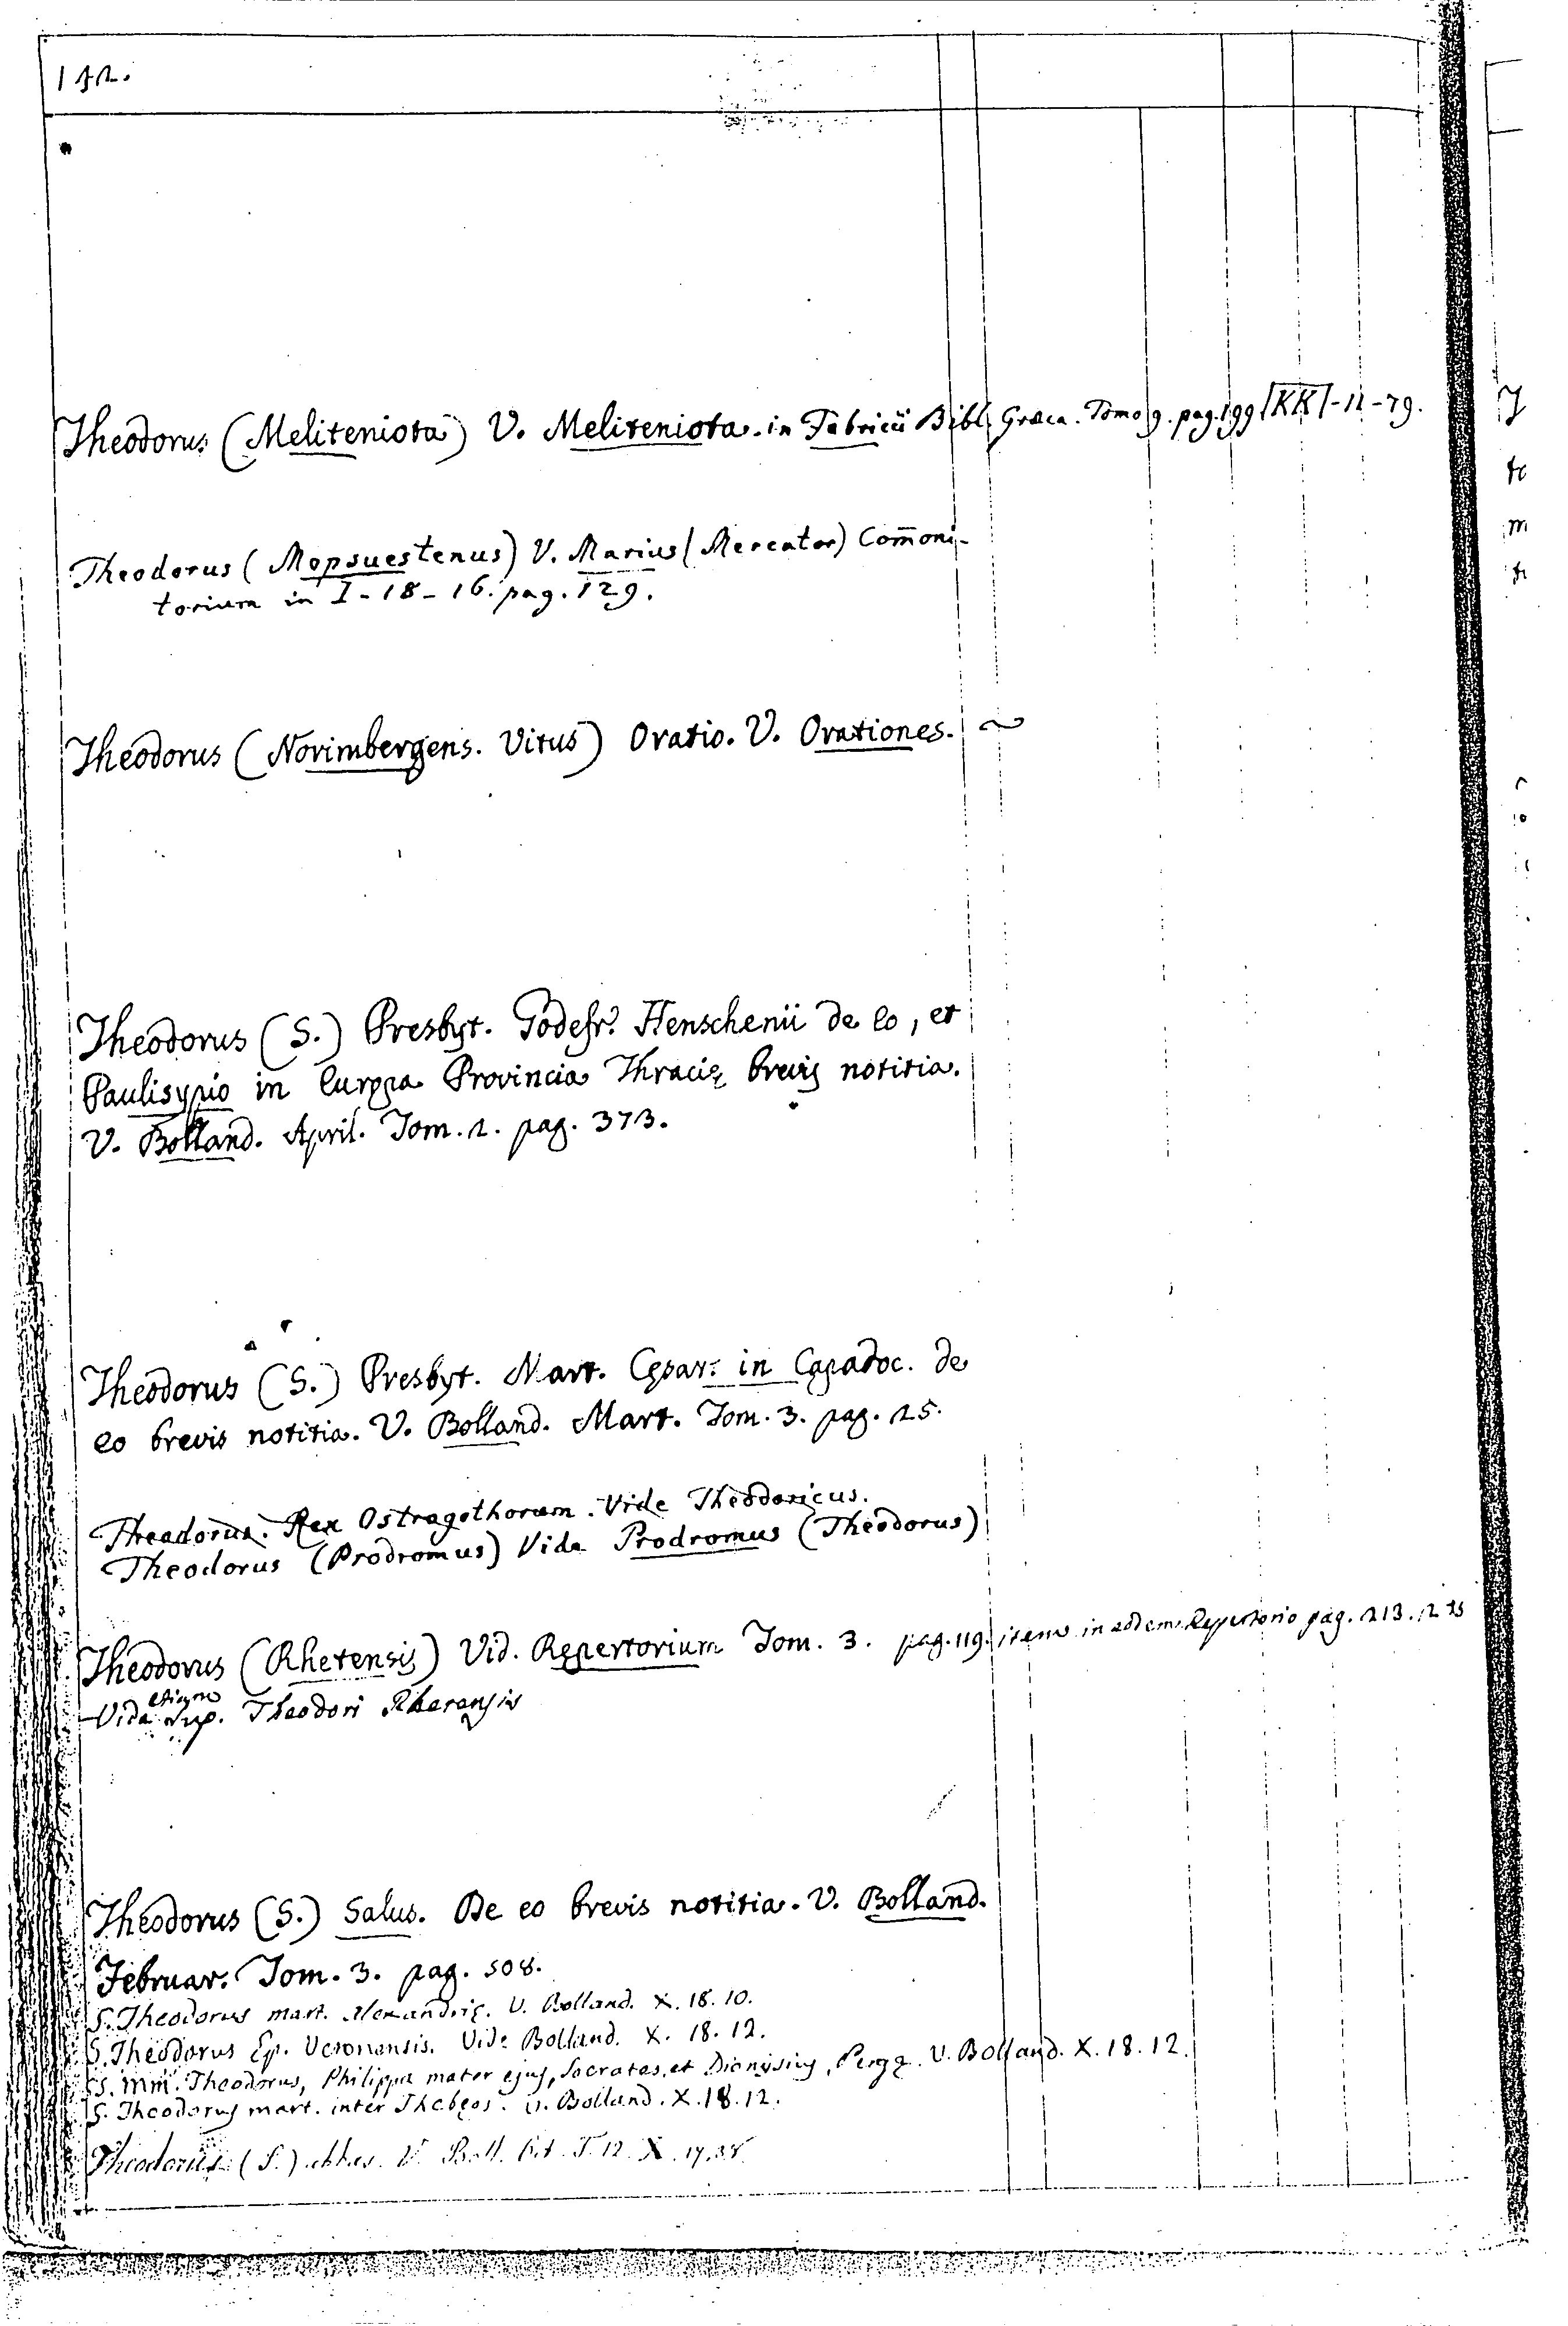 142.
Theodorus (Meliteniota) V. Meliteniota. in Fabricii Bibl. Græca. Tomo 9. pag. 199 KK-12-79.
Theodorus (Mopsuestenus) V. Marius (Mercator) Com̄oni-
torium in I-18-16. pag. 129.
Theodorus (Norimbergens. Vitus) Oratio. V. Orationes. ~
Theodorus (S.) Presbyt. Godefr. Henschenii de eo, et
Paulisypio in Europa Provincia Thracię brevis notitia.
V. Bolland. April. Tom. 2. pag. 373.
Theodorus (S.) Presbyt. Mart. Cęsar. in Capadoc. de
eo brevis notitia. V. Bolland. Mart. Tom. 3. pag. 25.
Theodorus. Rex Ostrogothorum. Vide Theodoricus.
Theodorus (Prodromus) Vide Prodromus (Theodorus)
Theodorus (Rhetensis) Vid. Repertorium Tom. 3. pag. 119. item in eodem Repertorio pag. 213.
Vide etiam sup. Theodori
Theodorus (S.) Salus. De eo brevis notitia. V. Bolland.
Februar. Tom. 3. pag. 508.
S. Theodorus mart. Alexandrię. V. Bolland. X. 18. 10.
S. Theodorus Ep. Veronensis. Vide Bolland. X. 18. 12.
SS. mm. Theodorus, Philippa mater ejus, Socrates, et Dionysius, Pergę. V. Bolland. X. 18. 12.
S. Theodorus mart. inter Thebęos. V. Bolland. X. 18. 12.
Theodorus (S.) abbas. V. Boll. T. 12. X.